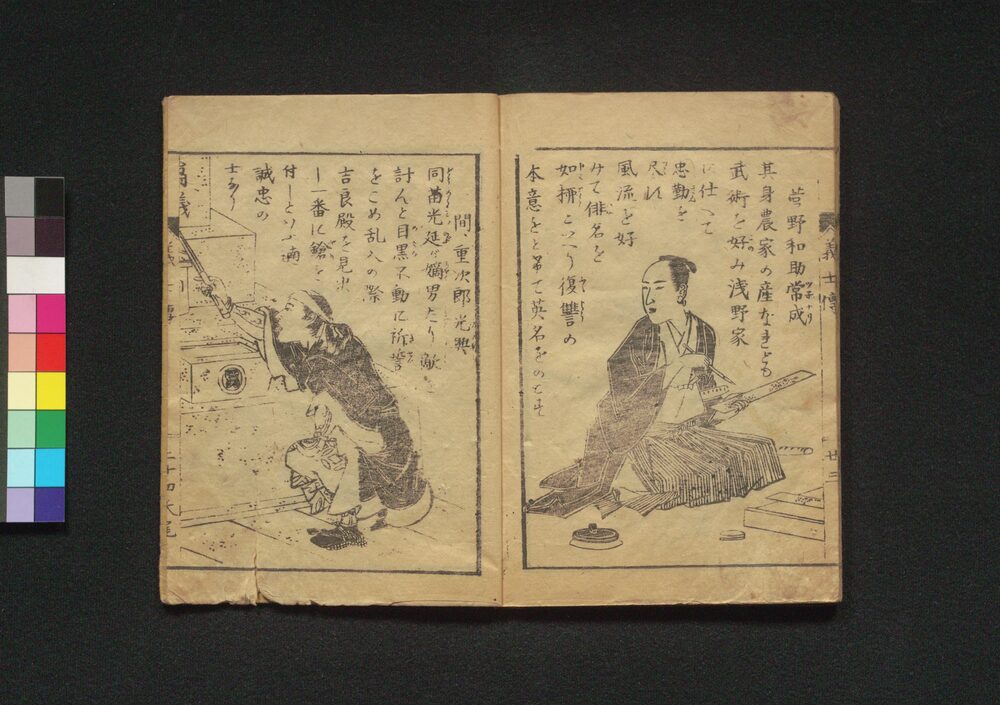 萱野和助常成
其身農家の産なれども
武術を好み浅野家
に仕へて
忠勤を
尽れ
風流を好
みて俳名を
如柳といへり復讐の
本意をとげて英名をのこす
義士傳
廿三
間重次郎光興
同苗光延が嫡男たり敵を
討んと目黒不動に祈誓
をこめ乱入の際
吉良殿を見出
し一番に鎗を
付しといふ適
誠忠の
士なり
義